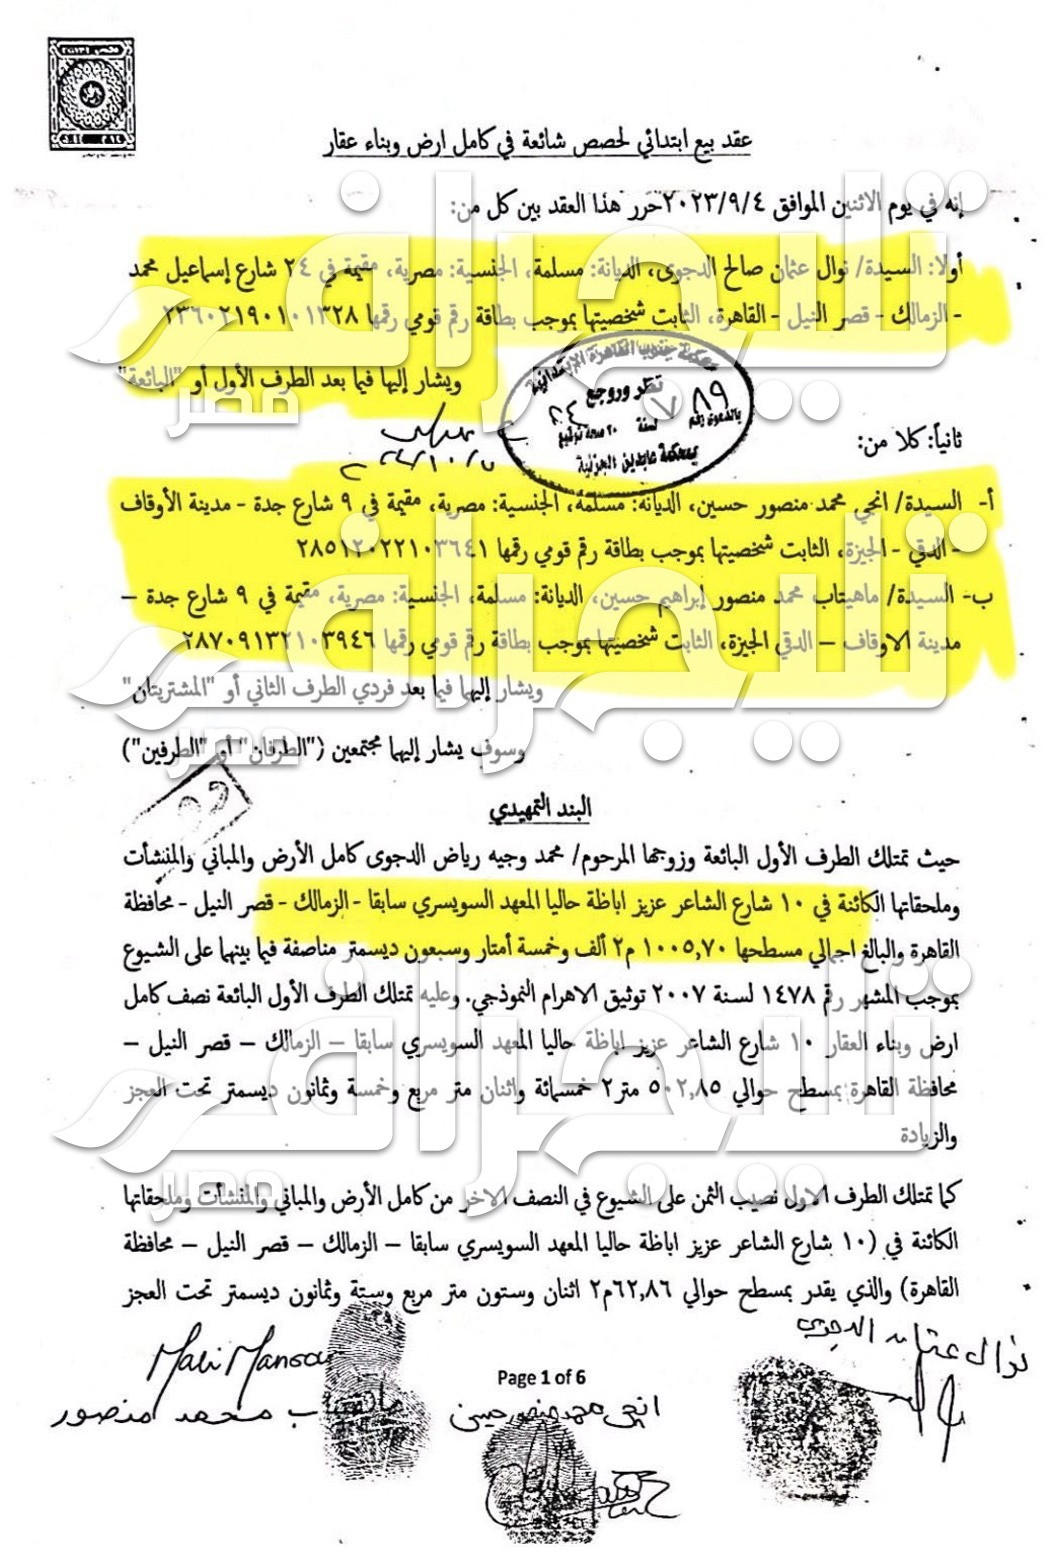 عقد بيع ابتدائي لحصص شائعة في كامل ارض وبناء عقار
إنه في يوم الاثنين الموافق ٢٠٢٣/٩/٤ حرر هذا العقد بين كل من:
أولا: السيدة/ نوال عثمان صالح الدجوى، الديانة: مسلمة، الجنسية: مصرية، مقيمة في ٢٤ شارع إسماعيل محمد
- الزمالك - قصر النيل - القاهرة، الثابت شخصيتها بموجب بطاقة رقم قومي رقمها ٢٣٦٠٢١٩٠١٠١٣٢٨
ويشار إليها فيما بعد الطرف الأول أو "البائعة"
محكمة جنوب القاهرة الابتدائية
نظر وروجع
بالدعوى رقم ٧٨٩ لسنة ٢٠٢٤ صحة توقيع
بمحكمة عابدين الجزئية
ثانياً: كلا من:
أ- السيدة/ انجي محمد منصور حسين، الديانة: مسلمة، الجنسية: مصرية، مقيمة في ٩ شارع جدة - مدينة الأوقاف
- الدقي - الجيزة، الثابت شخصيتها بموجب بطاقة رقم قومي رقمها ٢٨٥١٢٠٢٢١٠٣٦٤١
ب- السيدة/ ماهيتاب محمد منصور إبراهيم حسين، الديانة: مسلمة، الجنسية: مصرية، مقيمة في ٩ شارع جدة –
مدينة الاوقاف – الدقي الجيزة، الثابت شخصيتها بموجب بطاقة رقم قومي رقمها ٢٨٧٠٩١٣٢١٠٣٩٤٦
ويشار إليهما فيما بعد فردي الطرف الثاني أو "المشتريتان"
وسوف يشار إليهما مجتمعين ("الطرفان" أو "الطرفين")
البند التمهيدي
حيث تمتلك الطرف الأول البائعة وزوجها المرحوم/ محمد وجيه رياض الدجوى كامل الأرض والمباني والمنشأت
وملحقاتها الكائنة في ١٠ شارع الشاعر عزيز اباظة حاليا المعهد السويسري سابقا - الزمالك - قصر النيل - محافظة
القاهرة والبالغ اجمالي مسطحها ١٠٠٥,٧٠ م٢ ألف وخمسة أمتار وسبعون ديسمتر مناصفة فيما بينهما على الشيوع
بموجب المشهر رقم ١٤٧٨ لسنة ٢٠٠٧ توثيق الاهرام النموذجي. وعليه تمتلك الطرف الأول البائعة نصف كامل
ارض وبناء العقار ١٠ شارع الشاعر عزيز اباظة حاليا المعهد السويسري سابقا – الزمالك – قصر النيل –
محافظة القاهرة بمسطح حوالي ٥٠٢,٨٥ متر٢ خمسمائة واثنان متر مربع وخمسة وثمانون ديسمتر تحت العجز
والزيادة
كما تمتلك الطرف الاول نصيب الثمن على الشيوع في النصف الاخر من كامل الأرض والمباني والمنشأت وملحقاتها
الكائنة في (١٠ شارع الشاعر عزيز اباظة حاليا المعهد السويسري سابقا – الزمالك – قصر النيل – محافظة
القاهرة) والذي يقدر بمسطح حوالي ٦٢,٨٦م٢ اثنان وستون متر مربع وستة وثمانون ديسمتر تحت العجز
نوال عثمان الدجوى
Mahi Mansour
Page 1 of 6
انجي محمد منصور حسين
ماهيتاب محمد منصور
تليجراف
مصر
تليجراف
مصر
تليجراف
مصر